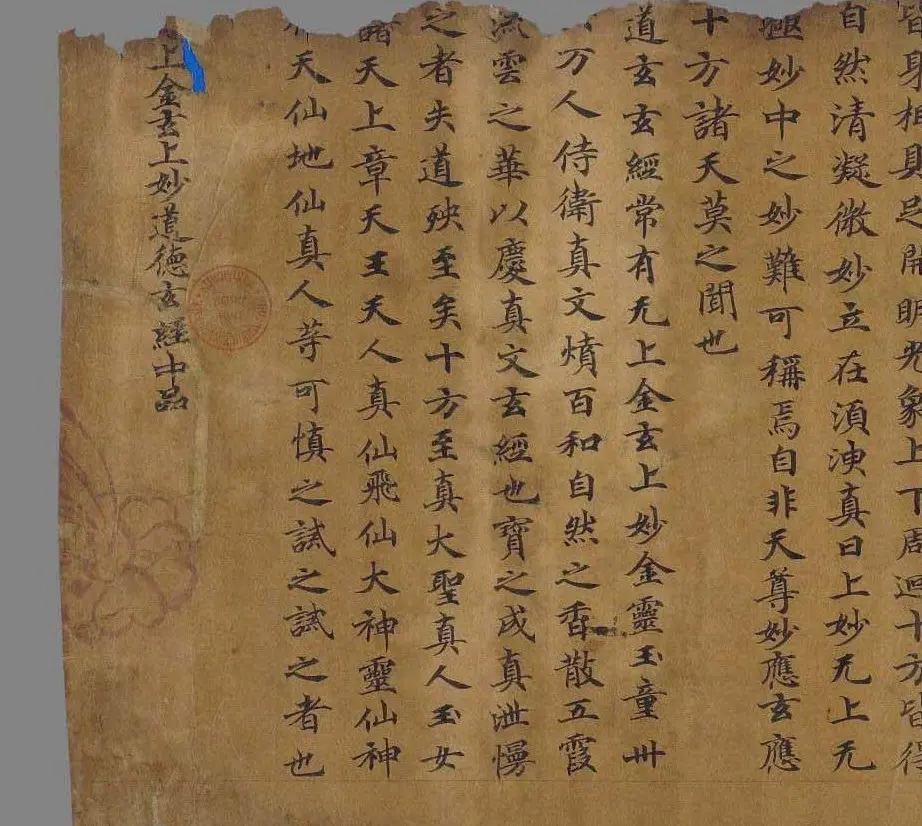 皆身相具足開明光象上下周迴十方皆得
自然清凝微妙立在湏㳛真曰上妙无上无
極妙中之妙難可稱焉自非天尊妙應玄應
十方諸天莫之聞也
道玄玄經常有无上金玄上妙金靈玉童卅
万人侍衛真文燌百和自然之香散五霞
流雲之華以慶真文玄經也寶之成真泄慢
之者失道殃至矣十方至真大聖真人玉女
天上章天王天人真仙飛仙大神靈仙神
天仙地仙真人等可慎之誡之誡之者也
上金玄上妙道德玄經中品